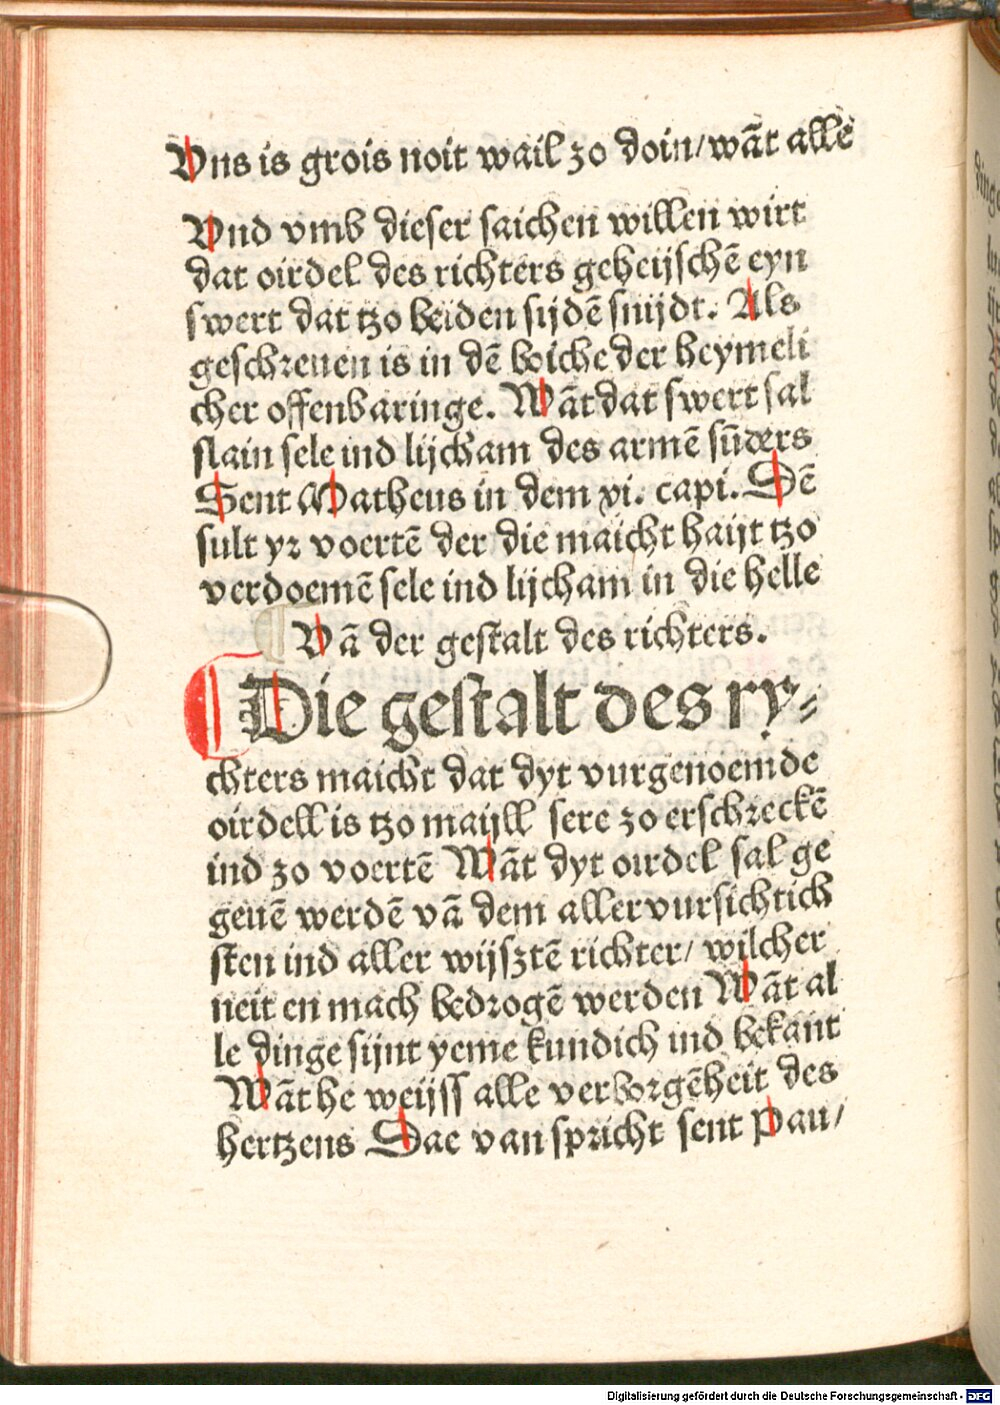 Vns is grois noit wail zo doin/ wāt alle
Vnd vmb dieser saichen willen wirt
dat oirdel des richters geheijschē eyn
swert dat tzo beiden sijdē snijdt. Als
geschreuen is in dē boiche der heymeli
cher offenbaringe. Wāt dat swert sal
slain sele ind lijcham des armē sūders
Sent Matheus in dem xi. capi. Dē
sult yr voertē der die maicht haijt tzo
verdoemē sele ind lijcham in die helle
Vā der gestalt des richters.
Die gestalt des ry⸗
chters maicht dat dyt vurgenoemde
oirdell is tzo maijll sere zo erschreckē
ind zo voertē Wāt dyt oirdel sal ge
geuē werdē vā dem allervursichtich
sten ind aller wijsztē richter/ wilcher
neit en mach bedrogē werden Wāt al
le dinge sijnt yeme kundich ind bekant
Wāt he weijss alle verborgēheit des
hertzens Dae van spricht sent Pau/
Digitalisierung gefördert durch die Deutsche Forschungsgemeinschaft - DFG